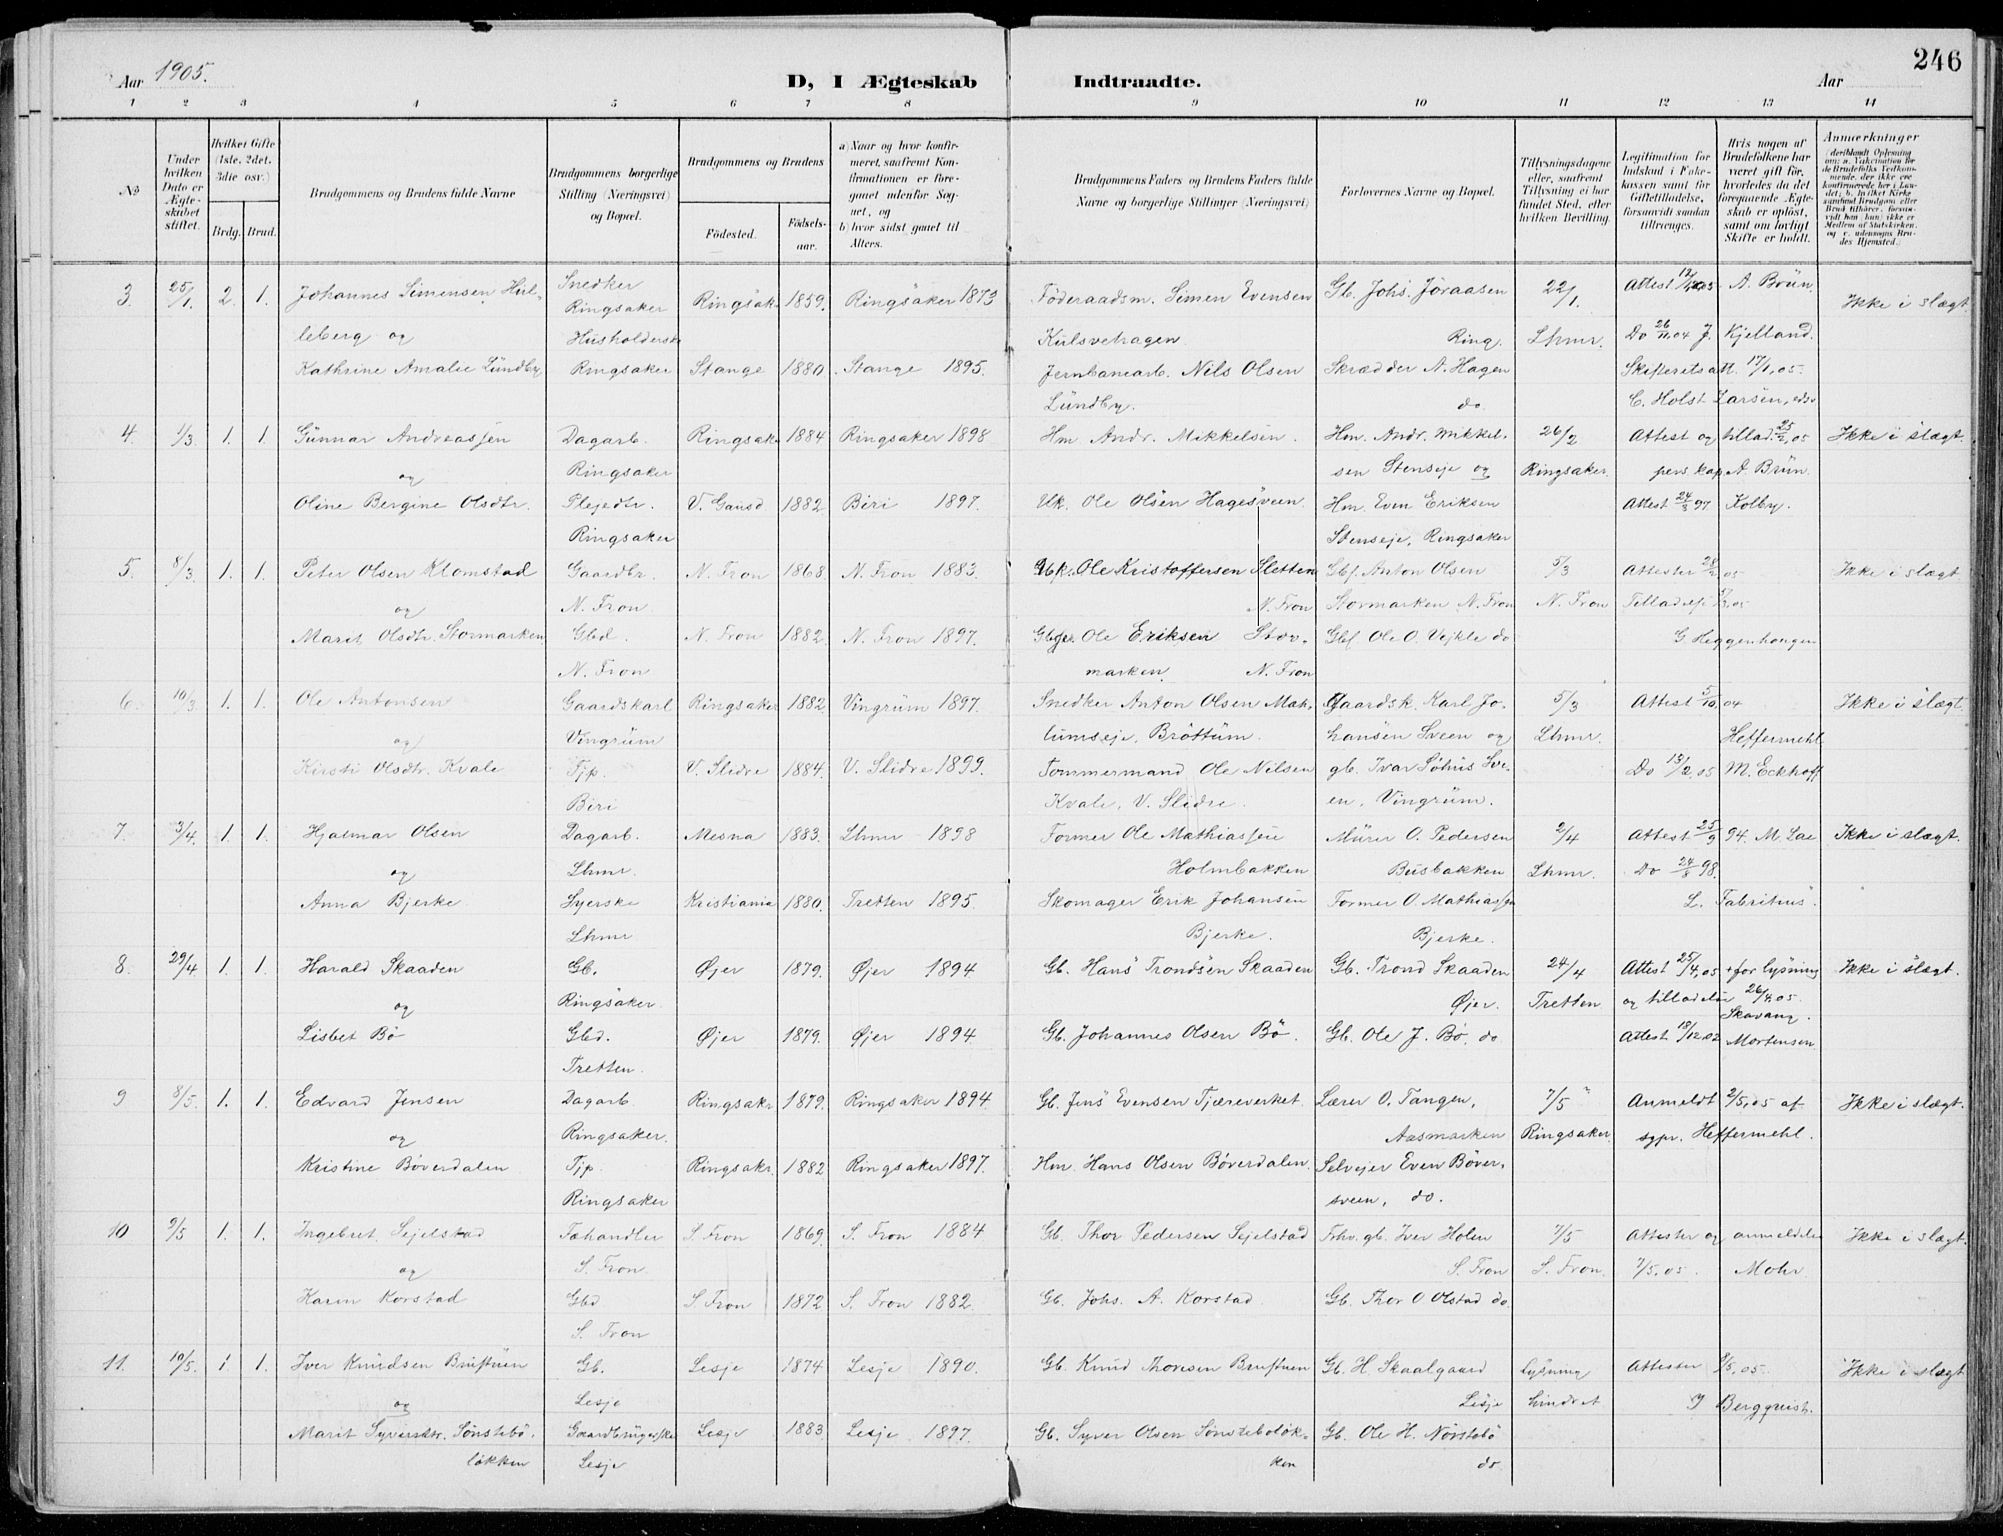 246
Aar 1905.
D, I Ægteskab Indtraadte.
Aar
1 2 3 4 5 6 7 8 9 10 11 12 13 14
No
Under hvilken Dato er Ægteskabet stiftet.
Hvilket Gifte (1ste, 2det, 3die osv.)
Brdg. Brud.
Brudgommens og Brudens fulde Navne
Brudgommens borgerlige Stilling (Næringsvei) og Bopæl.
Brudgommens og Brudens
Fødested.
Fødselsaar.
a) Naar og hvor konfirmeret, saafremt Konfirmationen er foregaaet udenfor Sognet, og
b) hvor sidst gaaet til Alters.
Brudgommens Faders og Brudens Faders fulde Navne og borgerlige Stillinger (Næringsvei)
Forlovernes Navne og Bopæl.
Tillysningsdagene eller, saafremt Tillysning ei har fundet Sted, efter hvilken Bevilling.
Legitimation for Indskud i Fokekassen samt for Giftetilladelse, forsaavidt saadan tiltrænges.
Hvis nogen af Brudefolkene har været gift før, hvorledes da det foregaaende Ægteskab er opløst, samt om lovligt Skifte er holdt.
Anmerkninger
3. 25/1. 2. 1. Johannes Simensen Hul- Snedker Ringsak. 1859. Ringsaker 1873 Föderaadsm. Simen Evensen Gb. Johs. Jøraasen 22/1. Attest 12/1 05 A. Brün. Ikke i slægt
leberg og Ringsaker Kulsvehagen. Ring. Lhmr. Do 26/11.04 J. Kjelland.
Husholderske
Kathrine Amalie Lundby Ringsaker Stange 1880. Stange 1895. Jernbanearb. Nils Olsen Skrædder A. Hagen Skifteretsatt. 17/1.05.
Lundby. do. C. Holst Larsen,
4. 1/3. 1. 1. Gunnar Andreassen Dagarb. Ringsak. 1884 Ringsaker 1898 Hm. Andr. Mikkelsen. Hm. Andr. Mikkel- 26/2 Attest og tillad. 25/2.05 Ikke i slægt.
og Ringsaker sen Stenseje og Ringsaker. pers. kap. A. Brün.
Oline Bergine Olsdtr. Plejedtr. V. Gausd 1882 Biri 1897. Uk. Ole Olsen Hagesveen Hm. Even Eriksen Attest 24/3 97 Kolby.
Ringsaker Stenseje, Ringsaker
5. 8/3. 1. 1. Peter Olsen Klomstad Gaardbr. N. Fron 1868. N. Fron 1883. Ole Kristoffersen Sletten Gbf. Anton Olsen 5/3 Attester 28/2 05 Ikke i slægt
og N. Fron N. Fron Stormarken N. Fron N. Fron Tilladelse 05
Marit Olsdtr. Stormarken Gbd. N. Fron 1882. N. Fron 1897. Ole Eriksen Stor- Gbf. Ole O. Vejkle do G Heggenhougen
N. Fron marken. N. Fron
6. 10/3 1. 1. Ole Antonsen Gaardskarl Ringsaker 1882. Vingrum 1897. Snedker Anton Olsen Mæh- Gaardsk. Karl Jo- 5/3 Attest 5/10.04 Ikke i slægt.
og Vingrum lumseje, Brøttum. hansen Sveen og Lhmr. Heffermehl
Kirsti Olsdtr. Kvale Tjp. V. Slidre 1884. V. Slidre 1899. Tømmermand Ole Nilsen gb. Ivar Søhus Sve- Do 13/2.05 M. Eckhoff
Biri Kvale, V. Slidre. en, Vingrum.
7. 3/4 1. 1. Hjalmar Olsen Dagarb. Mesna 1883. Lhmr 1898 Former Ole Mathiassen Murer O. Pedersen 2/4 Attest 25/9 94. M. Lae Ikke i slægt.
og Lhmr. Holmbakken Busbakken Lhmr. Do 24/ 98.
Anna Bjerke Syerske Kristiania 1880. Tretten 1895. Skomager Erik Johansen Former O. Mathiassen L. Fabritius.
Lhmr Bjerke. Bjerke.
8. 29/4 1. 1. Harald Skaaden Gb. Øjer 1879. Øjer 1894 Gb. Hans Trondsen Skaaden Gb. Trond Skaaden 24/4 Attest 25/4.05 + for lysning Ikke i slægt.
og Ringsaker. Øjer. Tretten og tilladelse 26/4.05. Skavang.
Lisbet Bø Gbd. Øjer 1879. Øjer 1894. Gb. Johannes Olsen Bø. Gb. Ole J. Bø, do Attest 18/12.02 Mortensen.
Tretten.
9 8/5. 1. 1. Edvard Jensen Dagarb. Ringsakr 1879. Ringsaker 1894. Gb. Jens Evensen Tjæreverket Lærer O. Tangen, 7/5 Anmeldt 2/5.05 af Ikke i slægt.
og Ringsaker. Aasmarken Ringsaker. sgpr. Heffermehl.
Kristine Bøverdalen Tjp. Ringsakr. 1882 Ringsaker 1897. Hm. Hans Olsen Bøverdalen. Selvejer Even Bøver-
Ringsaker sveen, do.
10 9/5 1. 1. Ingebret Sejelstad Fæhandler S. Fron 1869. S. Fron 1884 Gb. Thor Pedersen Sejelstad Frhv. gb. Iver Holen 7/5 Attester og anmeldelse Ikke i slægt.
og S. Fron. S. Fron S. Fron. 7/5.05. Mohr
Karen Korstad Gbd S. Fron 1872 S. Fron 1882. Gb. Johs. A. Korstad. Gb. Thor O Olstad do.
S. Fron
11. 10/5. 1 1. Iver Knudsen Brustuen Gb. Lesje 1874 Lesje 1890. Gb. Knud Thoresen Brustuen Gb. H Skaalgaard lysning Attester 8/5.05. Ikke i slægt
og Lesje Lesje hindret J Bergquist.
Marit Syversdtr. Sønstebø- Gaardbrugerske Lesje 1883 Lesje 1897. Gb. Syver Olsen Sønstebøløk- Gb. Ole H. Nørstebø
løkken Lesje ken do